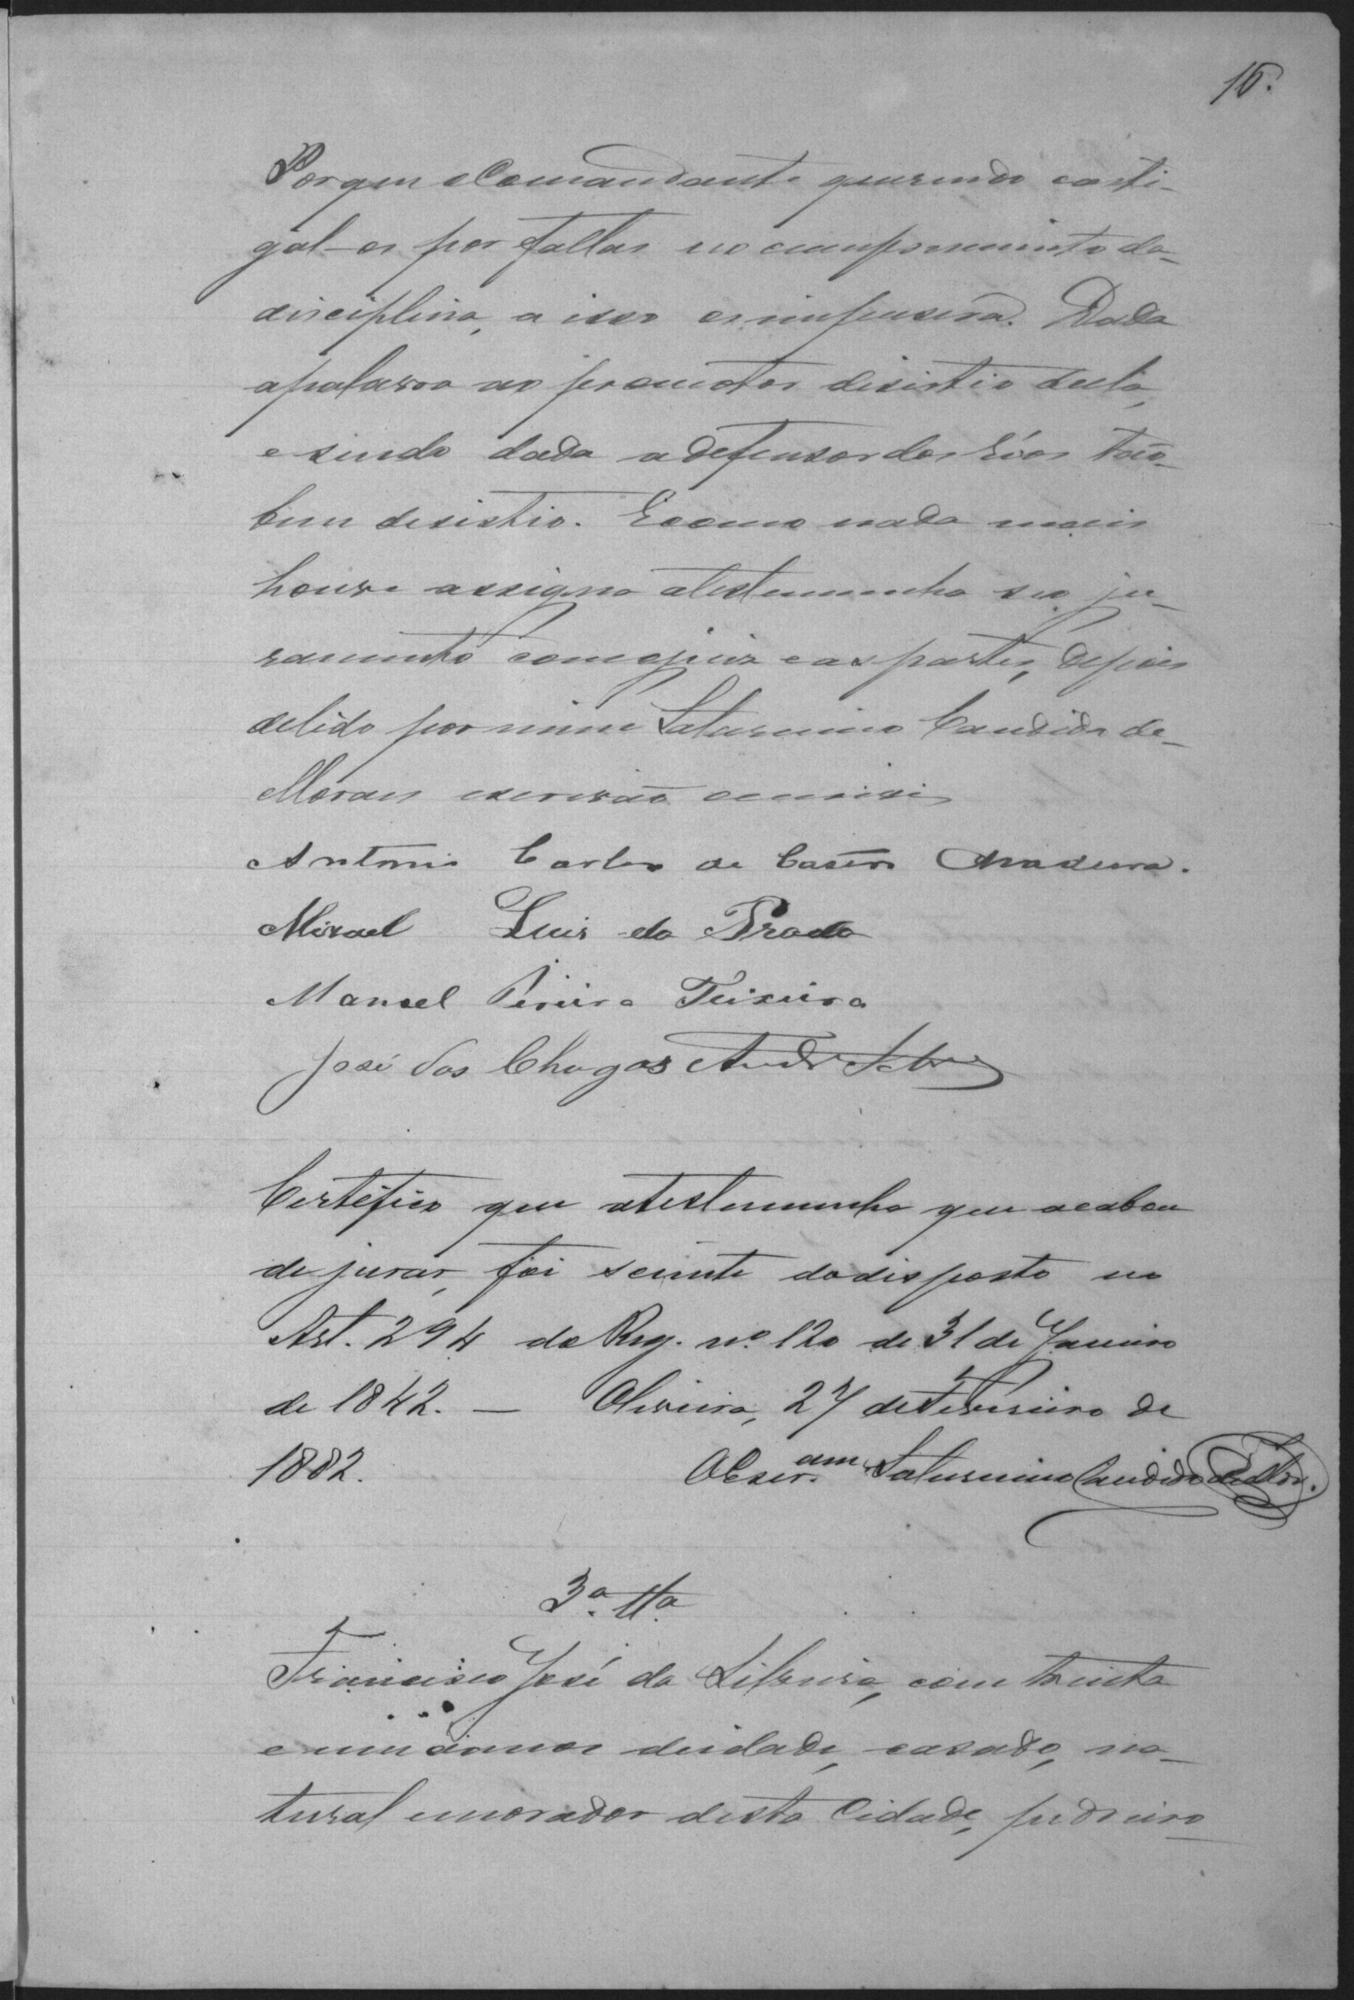 16.
Porque o Comandante querendo casti-
gal-os por faltas no cumprimento da
disciplina, a isso os impusera. Dada
apalavra ao promotor desistio della,
e sendo dada a defensor dos réos tão
bem desistio. E como nada mais
houve assigna atestemunha seo ju-
ramento com ojuis e as partes, depois
de lido por mim Saturnino Candido de
Moraes escrivão
Antonio Carlos de Castro Madeira.
Misael Luis do Prado
Manoel Pereira Teixeira
José das Chagas Andr
Certifico que atestemunha que acabou
de jurar, foi sciente dodisposto no
Art. 294 do Reg. nº 120 de 31 de Janeiro
de 1842. — Oliveira, 27 deFevereiro de
1882. OEscr.am Saturnino Candido de Mor.
3ª. ttª
Francisco José da Silveira, com trinta
e um annos deidade, casado, na-
tural emorador desta Cidade, pedreiro